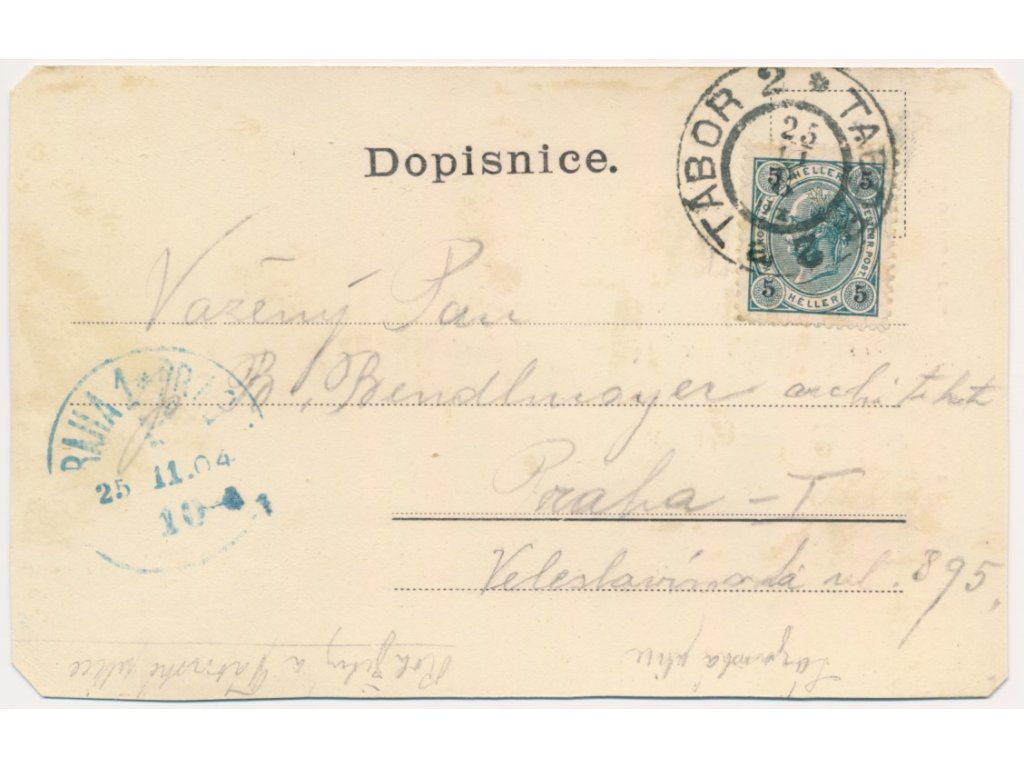 TÁBOR 2 * TAB
25
11
Dopisnice.
5 HELLER 5
5 HELLER 5
Vážený Pan
B. Bendlmayer architekt
Praha - I
Veleslavínova ul. 895.
PRAHA 1 * PRAG
25 11.04
10-
a Táborské ulice